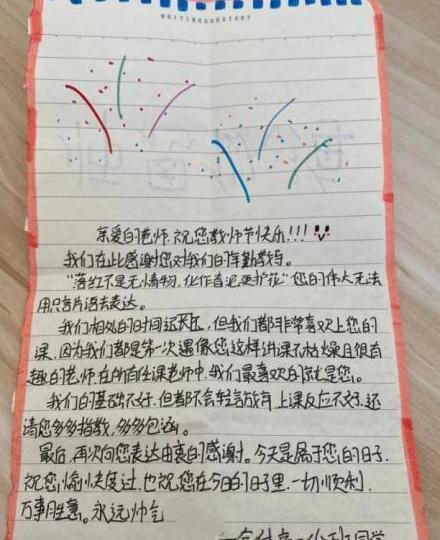 WRITINGOURSTORY
亲爱的老师,祝您教师节快乐!!!
我们在此感谢您对我们的辛勤教导。
“落红不是无情物,化作春泥更护花”您的伟大无法
用只言片语去表达。
我们相处的时间还不长,但我们都非常喜欢上您的
课,因为我们都是第一次遇像您这样讲课不枯燥且很有
趣的老师,在所有任课老师中,我们最喜欢的就是您。
我们的基础不好,但都不会轻言放弃,上课反应不好,还
请您多多指教,多多包涵。
最后,再次向您表达由衷的感谢。今天是属于您的日子,
祝您愉快度过,也祝您在今后的日子里,一切顺利,
万事胜意。永远帅气
班同学